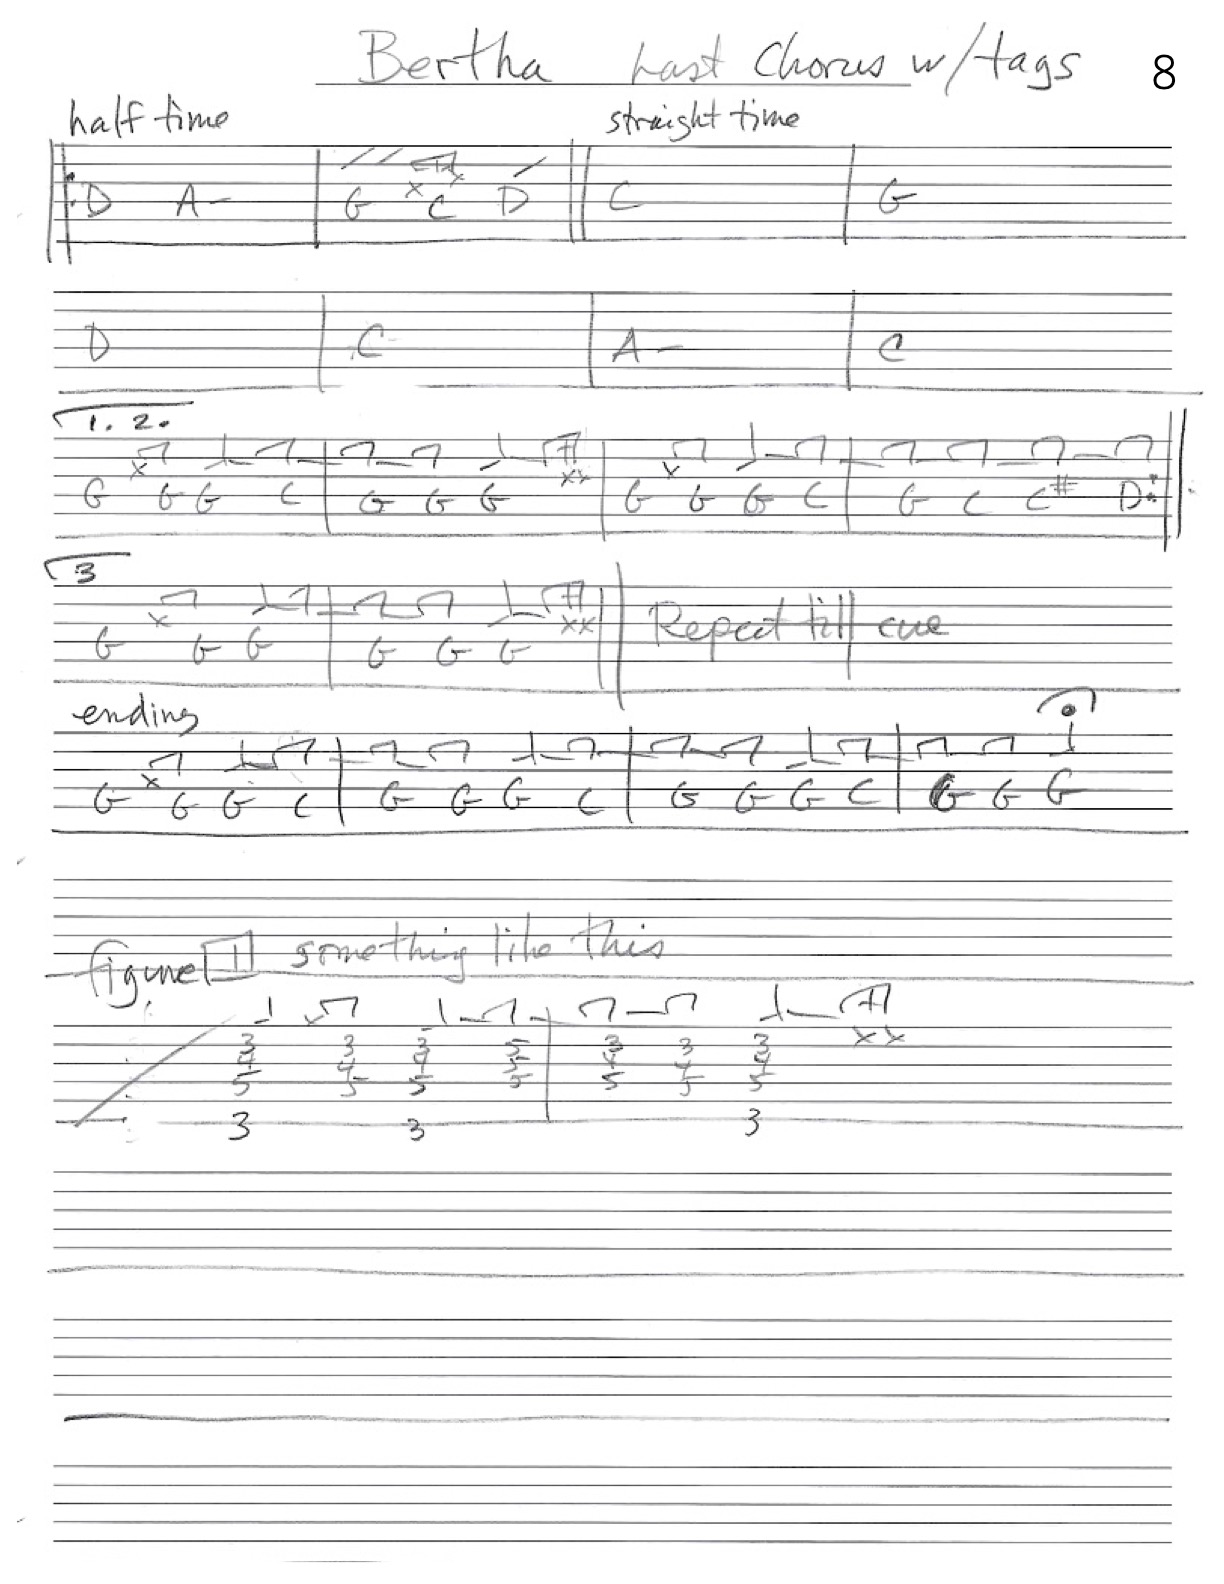 Bertha Last Chorus w/tags 8
half time straight time
D A- G x x C D C G
D C A- C
1. 2.
x xx x
G G G C G G G G G G C G C C# D
3
x xx
G G G G G G Repeat till cue
ending
x
G G G C G G G C G G G C G G G
figure 1 something like this
x x x
3 3 3 5 3 3 3
4 4 4 5 4 4 4
5 5 5 5 5 5 5
3 3 3